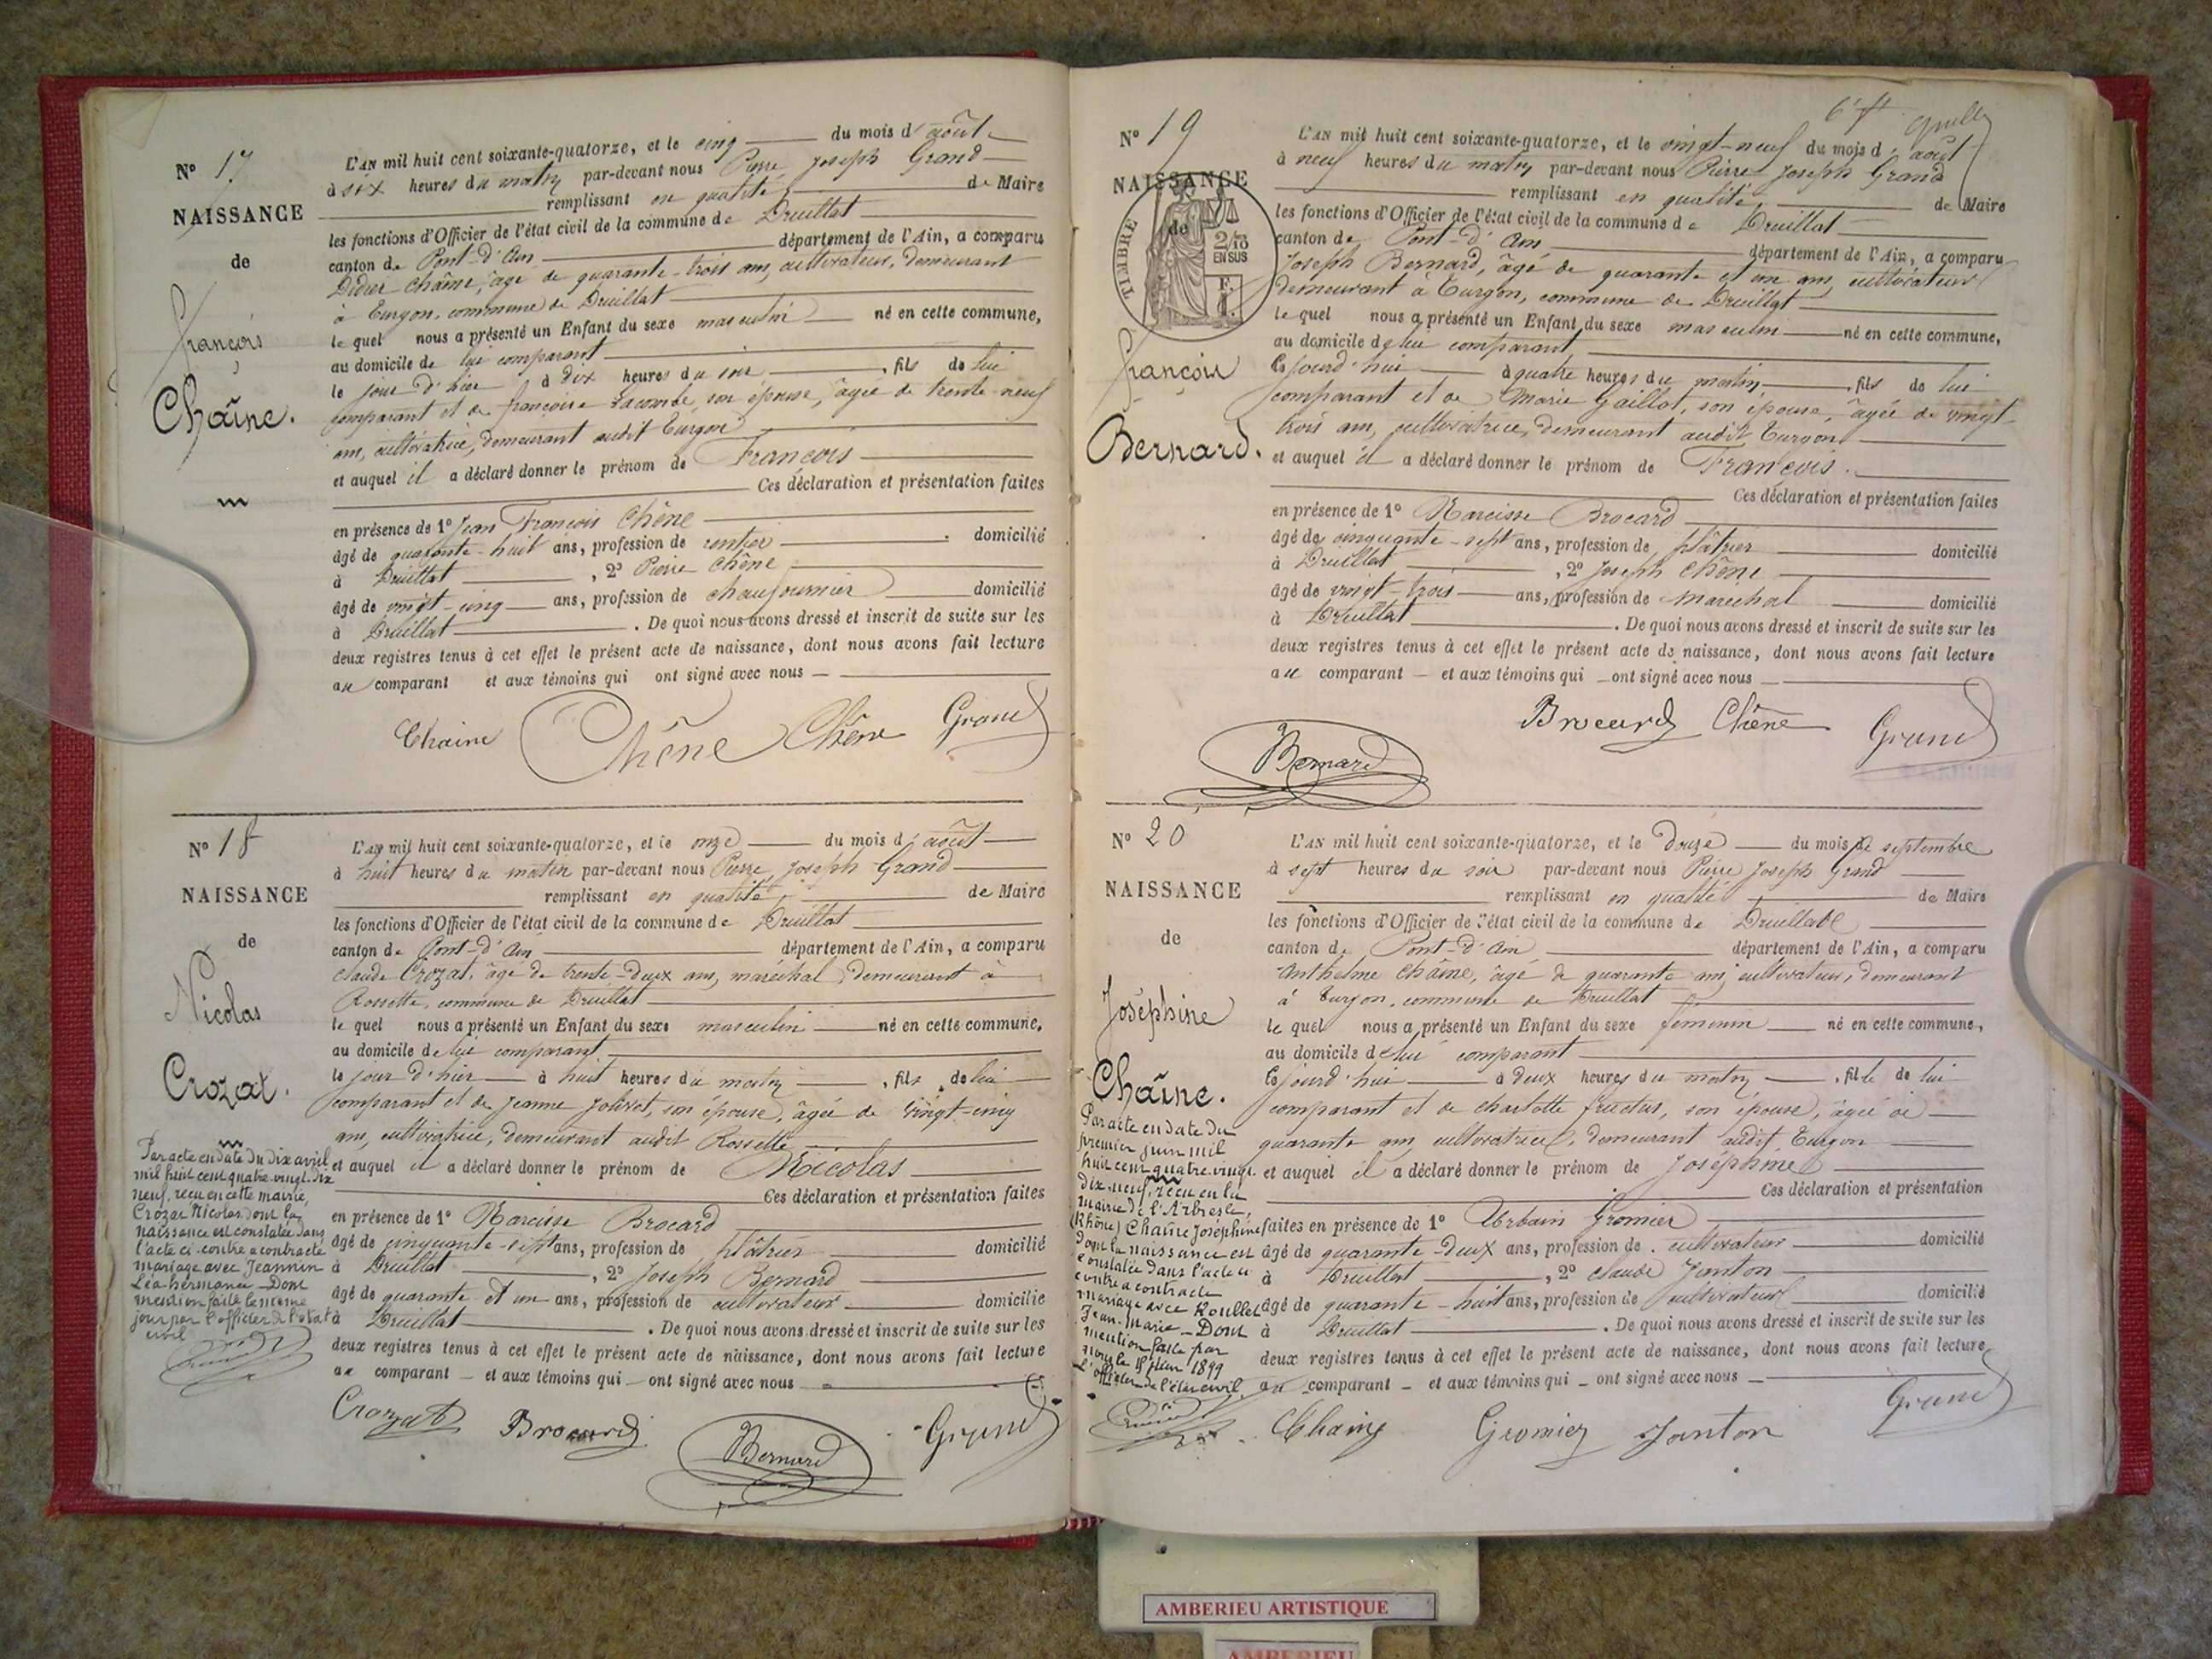 N° 17
NAISSANCE
de
François
Chaîne.
L'AN mil huit cent soixante-quatorze, et le cinq du mois d'août
à six heures du matin par-devant nous Pierre Joseph Grand
remplissant en qualité de Maire
les fonctions d'Officier de l'état civil de la commune de Druillat
canton de Pont-d'Ain département de l'Ain, a comparu
Didier Chaîne, âgé de quarante-trois ans, cultivateur, demeurant
à Turgon, commune de Druillat
lequel nous a présenté un Enfant du sexe masculin né en cette commune,
au domicile de lui comparant
le jour d'hier à dix heures du soir, fils de lui
comparant et de françoise Lacombe, son épouse, âgée de trente-neuf
ans, cultivatrice, demeurant audit Turgon
et auquel il a déclaré donner le prénom de François
Ces déclaration et présentation faites
en présence de 1° Jean François Chêne
âgé de quarante-huit ans, profession de rentier domicilié
à Druillat, 2° Pierre Chêne
âgé de vingt-cinq ans, profession de chaufournier domicilié
à Druillat. De quoi nous avons dressé et inscrit de suite sur les
deux registres tenus à cet effet le présent acte de naissance, dont nous avons fait lecture
au comparant et aux témoins qui ont signé avec nous
Chaine Chêne Chêne Grand
N° 18
NAISSANCE
de
Nicolas
Crozat.
Par acte en date du dix avril
mil huit cent quatre-vingt-dix
neuf, reçu en cette mairie,
Crozat Nicolas dont la
naissance est constatée dans
l'acte ci-contre a contracté
mariage avec Jeannin
Léa hermance _ Dont
mention faite le même
jour par l'officier de l'état
civil
L'AN mil huit cent soixante-quatorze, et le onze du mois d'août
à huit heures du matin par-devant nous Pierre Joseph Grand
remplissant en qualité de Maire
les fonctions d'Officier de l'état civil de la commune de Druillat
canton de Pont-d'Ain département de l'Ain, a comparu
claude Crozat, âgé de trente-deux ans, maréchal, demeurant à
Rossette, commune de Druillat
lequel nous a présenté un Enfant du sexe masculin né en cette commune,
au domicile de lui comparant
le jour d'hier à huit heures du matin, fils de lui
comparant et de Jeanne Jolivet, son épouse, âgée de vingt-cinq
ans, cultivatrice, demeurant audit Rossette
et auquel il a déclaré donner le prénom de Nicolas
Ces déclaration et présentation faites
en présence de 1° Narcisse Brocard
âgé de cinquante-sept ans, profession de plâtrier domicilié
à Druillat, 2° Joseph Bernard
âgé de quarante et un ans, profession de cultivateur domicilié
à Druillat. De quoi nous avons dressé et inscrit de suite sur les
deux registres tenus à cet effet le présent acte de naissance, dont nous avons fait lecture
au comparant et aux témoins qui ont signé avec nous
Crozat Brocard Bernard Grand
N° 19
NAISSANCE
de
TIMBRE
2/10
EN SUS
François
Bernard.
L'AN mil huit cent soixante-quatorze, et le vingt-neuf du mois d'août
à neuf heures du matin par-devant nous Pierre Joseph Grand
remplissant en qualité de Maire
les fonctions d'Officier de l'état civil de la commune de Druillat
canton de Pont-d'Ain département de l'Ain, a comparu
Joseph Bernard, âgé de quarante et un ans, cultivateur
demeurant à Turgon, commune de Druillat
lequel nous a présenté un Enfant du sexe masculin né en cette commune,
au domicile de lui comparant
cejourd'hui à quatre heures du matin, fils de lui
comparant et de Marie Gaillot, son épouse, âgée de vingt-
trois ans, cultivatrice, demeurant audit Turgon
et auquel il a déclaré donner le prénom de François.
Ces déclaration et présentation faites
en présence de 1° Narcisse Brocard
âgé de cinquante-sept ans, profession de plâtrier domicilié
à Druillat, 2° Joseph Chêne
âgé de vingt-trois ans, profession de maréchal domicilié
à Druillat. De quoi nous avons dressé et inscrit de suite sur les
deux registres tenus à cet effet le présent acte de naissance, dont nous avons fait lecture
au comparant et aux témoins qui ont signé avec nous
Brocard Chêne Grand
Bernard
N° 20
NAISSANCE
de
Joséphine
Chaîne.
Par acte en date du
premier juin mil
huit cent quatre-vingt
dix-neuf, reçu en la
mairie de l'Arbresle,
(Rhône) Chaîne Joséphine
dont la naissance est
constatée dans l'acte ci
contre a contracté
mariage avec Roullet
Jean-Marie _ Dont
mention faite par
nous le 18 juin 1899
L'officier de l'état civil
L'AN mil huit cent soixante-quatorze, et le douze du mois de septembre
à sept heures du soir par-devant nous Pierre Joseph Grand
remplissant en qualité de Maire
les fonctions d'Officier de l'état civil de la commune de Druillat
canton de Pont-d'Ain département de l'Ain, a comparu
Anthelme Chaîne, âgé de quarante ans, cultivateur, demeurant
à Turgon, commune de Druillat
lequel nous a présenté un Enfant du sexe féminin né en cette commune,
au domicile de lui comparant
cejourd'hui à deux heures du matin, fille de lui
comparant et de charlotte fructus, son épouse, âgée de
quarante ans, cultivatrice, demeurant audit Turgon
et auquel il a déclaré donner le prénom de Joséphine
Ces déclaration et présentation
faites en présence de 1° Urbain Gromier
âgé de quarante-deux ans, profession de cultivateur domicilié
à Druillat, 2° claude Janton
âgé de quarante-huit ans, profession de cultivateur domicilié
à Druillat. De quoi nous avons dressé et inscrit de suite sur les
deux registres tenus à cet effet le présent acte de naissance, dont nous avons fait lecture
au comparant et aux témoins qui ont signé avec nous
Chaine Gromier Janton Grand
AMBERIEU ARTISTIQUE
AMBERIEU